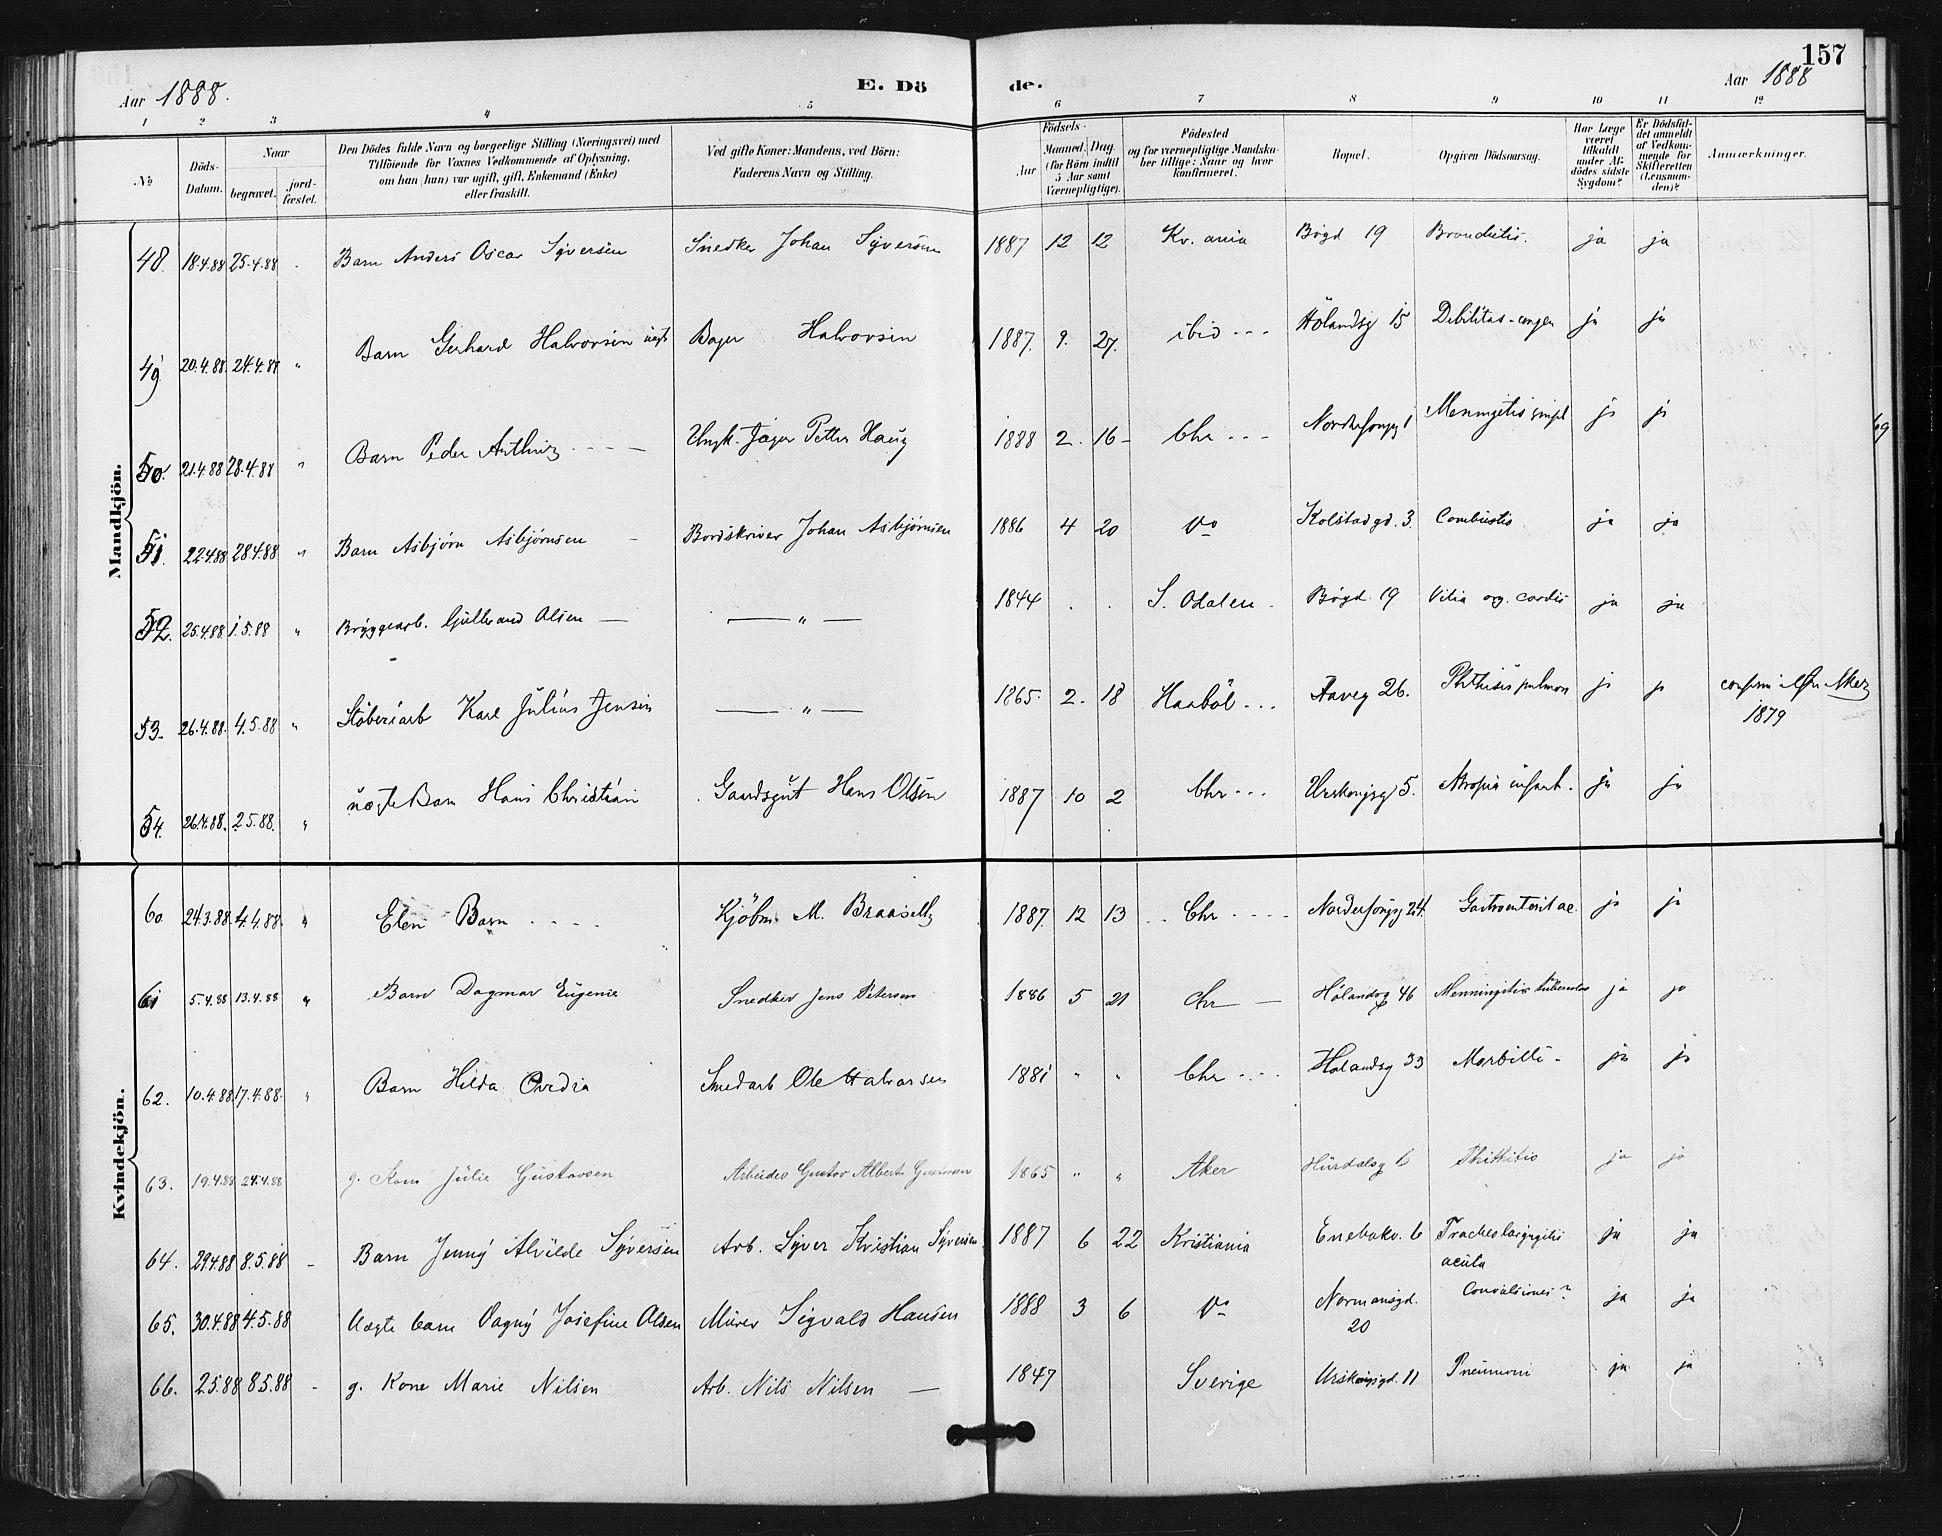 157
Aar 1888.
E. Dö
de.
Aar 1888
1 2 3 4 5 6 7 8 9 10 11 12
№
Döds-Datum.
Naar
begravet.
jord-fæstet.
Den Dödes fulde Navn og borgerlige Stilling (Næringsvei) med
Tilföiende for Voxnes Vedkommende af Oplysning,
om han (hun) var ugift, gift, Enkemand (Enke)
eller fraskilt.
Ved gifte Koner: Mandens, ved Börn:
Faderens Navn og Stilling.
Födsels-
Aar
Maaned. Dag.
(for Börn indtil
5 Aar samt
Værnepligtige).
Födested
og for værnepligtige Mandska-
ber tillige: Naar og hvor
konfirmeret.
Bopæl.
Opgiven Dödsaarsag.
Har Læge
været
tilkaldt
under Af-
dödes sidste
Sygdom?
Er Dödsfal-
det anmeldt
af Vedkom-
mende for
Skifteretten
(Lensman-
den)?
Anmærkninger.
Mandkjön.
48. 18.4.88 25.4.88 - Barn Anders Oscar Syversen Snedker Johan Syversen 1887 12 12 Kr.ania Bögd 19 Bronchitis. ja ja
49 20.4.88. 24.4.88 " Barn Gerhard Halvorsen uægte Bager Halvorsen 1887. 9. 27. ibid --- Hölandsg 15 Debilitas congen ja ja
50. 21.4.88 28.4.88 " Barn Peder Arthur ---- Petter Haug 1888 2. 16- Chr --- ja ja
51. 22.4.88 28.4.88 " Barn Asbjørn Asbjørnsen - Bordskriver Johan Asbjørnsen 1886 4 20 Do Kolstadgd. 3. Combustio ja ja
52. 25.4.88 1.5.88 " Bryggearb. Gulbrand Olsen — — " — 1844 . . S. Odalen. Bögd. 19 Vitia org. cordis ja ja
53. 26.4.88. 4.5.88 " Støberiarb Karl Julius Jensen — " — 1865. 2. 18 Haabøl ... Aaveg 26. Phthisis pulmon ja ja
1879
54. 26.4.88. 2.5.88. " uægte Barn Hans Christian Gaardsgut Hans Olsen 1887 10 2 Chr --- Urskougsg 5. Atropia infant. ja ja
Kvindekjön.
60 24.3.88. 4.4.88. " Elen Barn ---- Kjöbm. M. 1887. 12 13 Chr ---- 24. ja ja
61 5.4.88 13.4.88 " Barn Dagmar Eugenie Snedker Jens Petersen 1886 5 21 Chr — Hölandsg 46 Menningitis tuberculos ja ja
62. 10.4.88 17.4.88. " Barn Hilda Ovidia Smedarb Ole Halvorsen 1881 " " Chr --- Hölandsg 33 Morbilli - ja ja
63. 19.4.88 24.4.88 g. Kone Julie Gustavsen Arbeider Gustav Albert Gustavsen 1865 " " Aker Hurdalsg 6 ja ja
64. 29.4.88 8.5.88 - Barn Jenny Alvilde Syversen Arb. Syver Kristian Syversen 1887 6 22 Kristiania Enebakv. 6
acuta ja ja
65. 30.4.88 4.5.88 Uægte barn Dagny Josefine Olsen Murer Sigvald Hansen 1888 3 6 Do Normansgd.
20 Convulsiones? ja ja
66. 2.5.88 8.5.88 - g. Kone Marie Nilsen Arb. Nils Nilsen — 1847 Sverige Urskougsgd. 11 Pneumoni ja ja